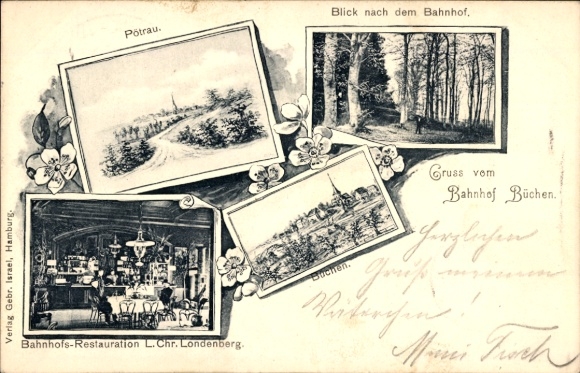 Pötrau.
Blick nach dem Bahnhof.
Gruss vom
Bahnhof Büchen.
Büchen.
Bahnhofs-Restauration L. Chr. Londenberg.
Verlag Gebr. Israel, Hamburg.
Herzlichen
Gruß meinem
Väterchen!
Mimi Tisch